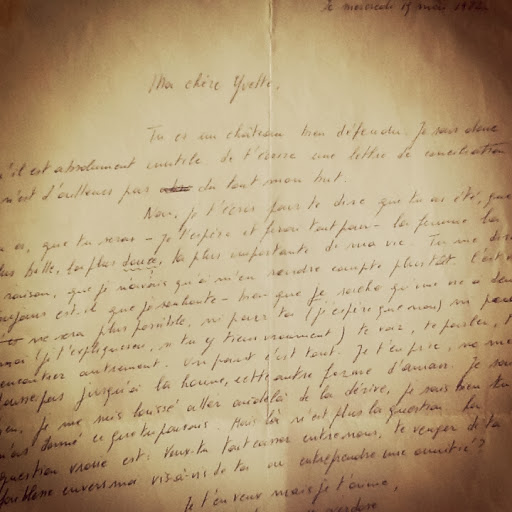 le mercredi 19 mai 19
Ma chère Yvette,
Tu es un château bien défendu. Je sais donc
qu'il est absolument inutile de t'écrire une lettre de conciliation
n'est d'ailleurs pas du tout mon but.
Non, je t'écris pour te dire que tu as été, que
tu es, que tu seras – je t'espère et ferai tout pour – la femme la
plus belle, la plus douce, la plus importante de ma vie. Tu me diras
raison, que je n'avais qu'à m'en rendre compte plus tôt. C'est
toujours est-il que je souhaite – bien que je sache qu'une vie à deux
ne sera plus possible, ni pour toi (j'espère que non) ni pour
moi (je t'expliquerai, si tu y tiens vraiment) te voir, te parler, t
autrement. Un point c'est tout. Je t'en prie, ne me
pousse pas jusqu'à la haine, cette autre forme d'amour. Je sais
je me suis laissé aller au-delà de la dérive, je sais bien tu
m'as donné ce que tu pouvais. Mais là n'est plus la question. La
question vraie est: Veux-tu tout casser entre nous, te venger de ta
faiblesse envers moi vis-à-vis de toi ou entreprendre une amitié?
Je t'en veux mais je t'aime,